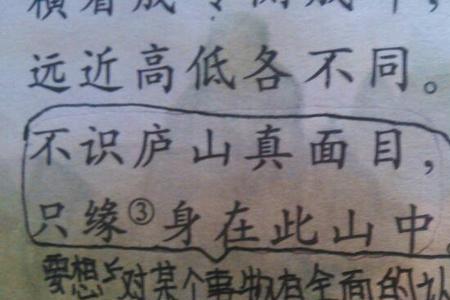 横看成岭侧成峰，
远近高低各不同。
不识庐山真面目，
只缘③身在此山中。
要想与对某个事物有全面的认